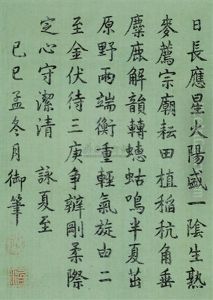 日長應星火陽盛一陰生熟
麥薦宗廟耘田植稻秔角垂
麋鹿解韻轉蟪蛄鳴半夏茁
原野兩端衡重輕氣旋由二
至金伏待三庚爭辯剛柔際
定心守潔清　詠夏至
己巳孟冬月御筆